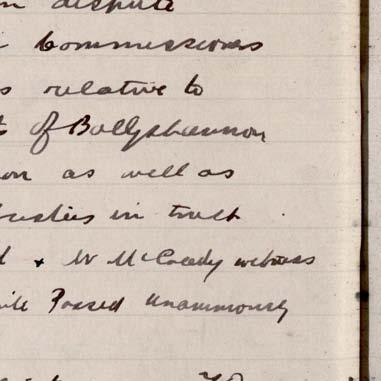 in dispute
Commissioners
s relative to
of Ballyshannon
on as well as
in trust
& W McCready witness
Passed unanimously